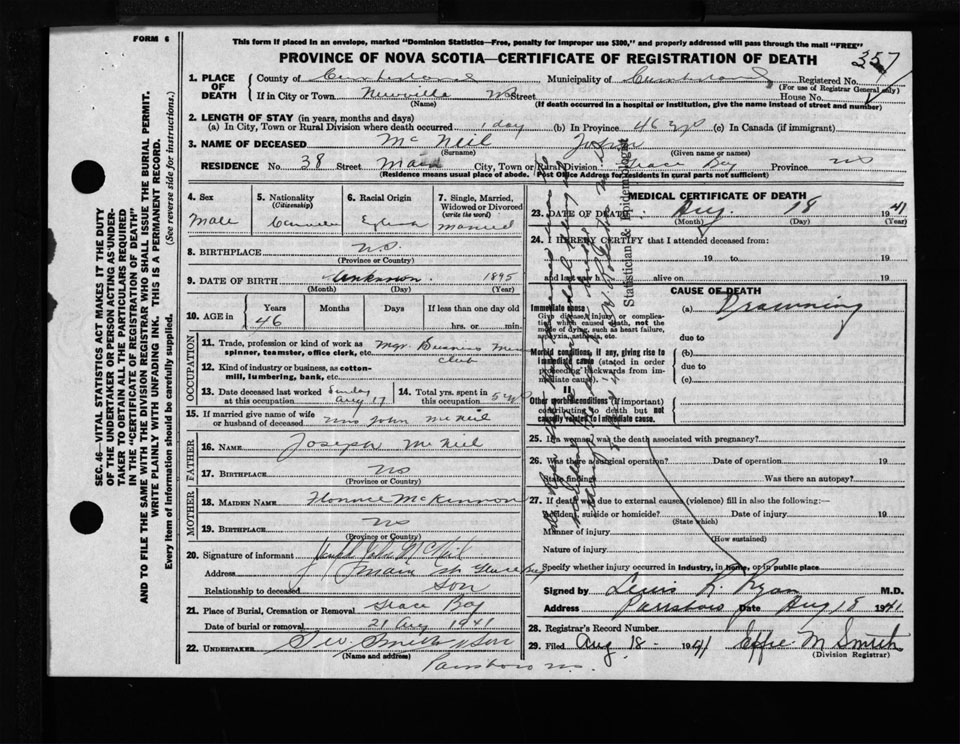 FORM 6
This form if placed in an envelope, marked "Dominion Statistics—Free, penalty for improper use $300," and properly addressed will pass through the mail "FREE"
PROVINCE OF NOVA SCOTIA—CERTIFICATE OF REGISTRATION OF DEATH 357
1. PLACE OF DEATH
County of Cumberland Municipality of Cumberland Registered No.
(For use of Registrar General only)
If in City or Town Newville NS Street House No.
(Name) (If death occurred in a hospital or institution, give the name instead of street and number)
2. LENGTH OF STAY (in years, months and days)
(a) In City, Town or Rural Division where death occurred 1 day (b) In Province 46 yrs (c) In Canada (if immigrant)
3. NAME OF DECEASED McNeil John
(Surname) (Given name or names)
RESIDENCE No. 38 Street Main City, Town or Rural Division Glace Bay Province NS
(Residence means usual place of abode. Post Office Address for residents in rural parts not sufficient)
4. Sex Male
5. Nationality (Citizenship) Canadian
6. Racial Origin English
7. Single, Married, Widowed or Divorced (write the word) Married
8. BIRTHPLACE N.S.
(Province or Country)
9. DATE OF BIRTH Unknown 1895
(Month) (Day) (Year)
10. AGE in Years 46 Months Days If less than one day old
hrs. or min.
11. Trade, profession or kind of work as spinner, teamster, office clerk, etc. Mgr Business Men Club
12. Kind of industry or business, as cotton-mill, lumbering, bank, etc.
13. Date deceased last worked at this occupation Sunday Aug 17
14. Total yrs. spent in this occupation 5 yrs
15. If married give name of wife or husband of deceased Mrs John McNeil
FATHER
16. NAME Joseph McNeil
17. BIRTHPLACE NS
(Province or Country)
MOTHER
18. MAIDEN NAME McKinnon
19. BIRTHPLACE NS
(Province or Country)
20. Signature of informant John McNeil
Address Main St Glace Bay
Relationship to deceased Son
21. Place of Burial, Cremation or Removal Glace Bay
Date of burial or removal 21 Aug 1941
22. UNDERTAKER Smith & Son
(Name and address)
Parrsboro NS.
MEDICAL CERTIFICATE OF DEATH
23. DATE OF DEATH Aug. 18 1941
(Month) (Day)
24. I HEREBY CERTIFY that I attended deceased from:
19 to 19
and last saw h alive on 19
CAUSE OF DEATH
Immediate cause
Give disease, injury or complication which caused death, not the mode of dying, such as heart failure, asphyxia, asthenia, etc.
(a) Drowning
due to
Morbid conditions, if any, giving rise to immediate cause (stated in order proceeding backwards from immediate cause).
(b)
due to
(c)
II
Other morbid conditions (if important) contributing to death but not causally related to immediate cause.
25. If a woman, was the death associated with pregnancy?
26. Was there a surgical operation? Date of operation 19
State findings Was there an autopsy?
27. If death was due to external causes (violence) fill in also the following:—
Accident, suicide or homicide? Date of injury 19
(State which)
Manner of injury
(How sustained)
Nature of injury
Specify whether injury occurred in industry, in home, or in public place
Signed by Lewis R. Ryan M.D.
Address Parrsboro Date Aug 18 1941
28. Registrar's Record Number
29. Filed Aug 18 1941 Effie M Smith
(Division Registrar)
Statistician & Epidemiologist
SEC. 46—VITAL STATISTICS ACT MAKES IT THE DUTY OF THE UNDERTAKER OR PERSON ACTING AS UNDERTAKER TO OBTAIN ALL THE PARTICULARS REQUIRED IN THE "CERTIFICATE OF REGISTRATION OF DEATH" AND TO FILE THE SAME WITH THE DIVISION REGISTRAR WHO SHALL ISSUE THE BURIAL PERMIT.
WRITE PLAINLY WITH UNFADING INK. THIS IS A PERMANENT RECORD.
Every item of information should be carefully supplied. (See reverse side for instructions.)